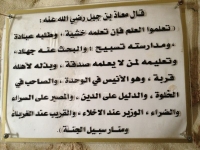 قال معاذ بن جبل رضي الله عنه :
( تعلموا العلم فإن تعلمه خشية ، وطلبه عبادة
، ومدارسته تسبيح ، والبحث عنه جهاد ،
وتعليمه لمن لا يعلمه صدقة ، وبذله لأهله
قربة ، وهو الأنيس في الوحدة ، والصاحب في
الخلوة ، والدليل على الدين ، والمصبر على السراء
والضراء ، والوزير عند الأخلاء ، والقريب عند الغرباء
ومنار سبيل الجنة )